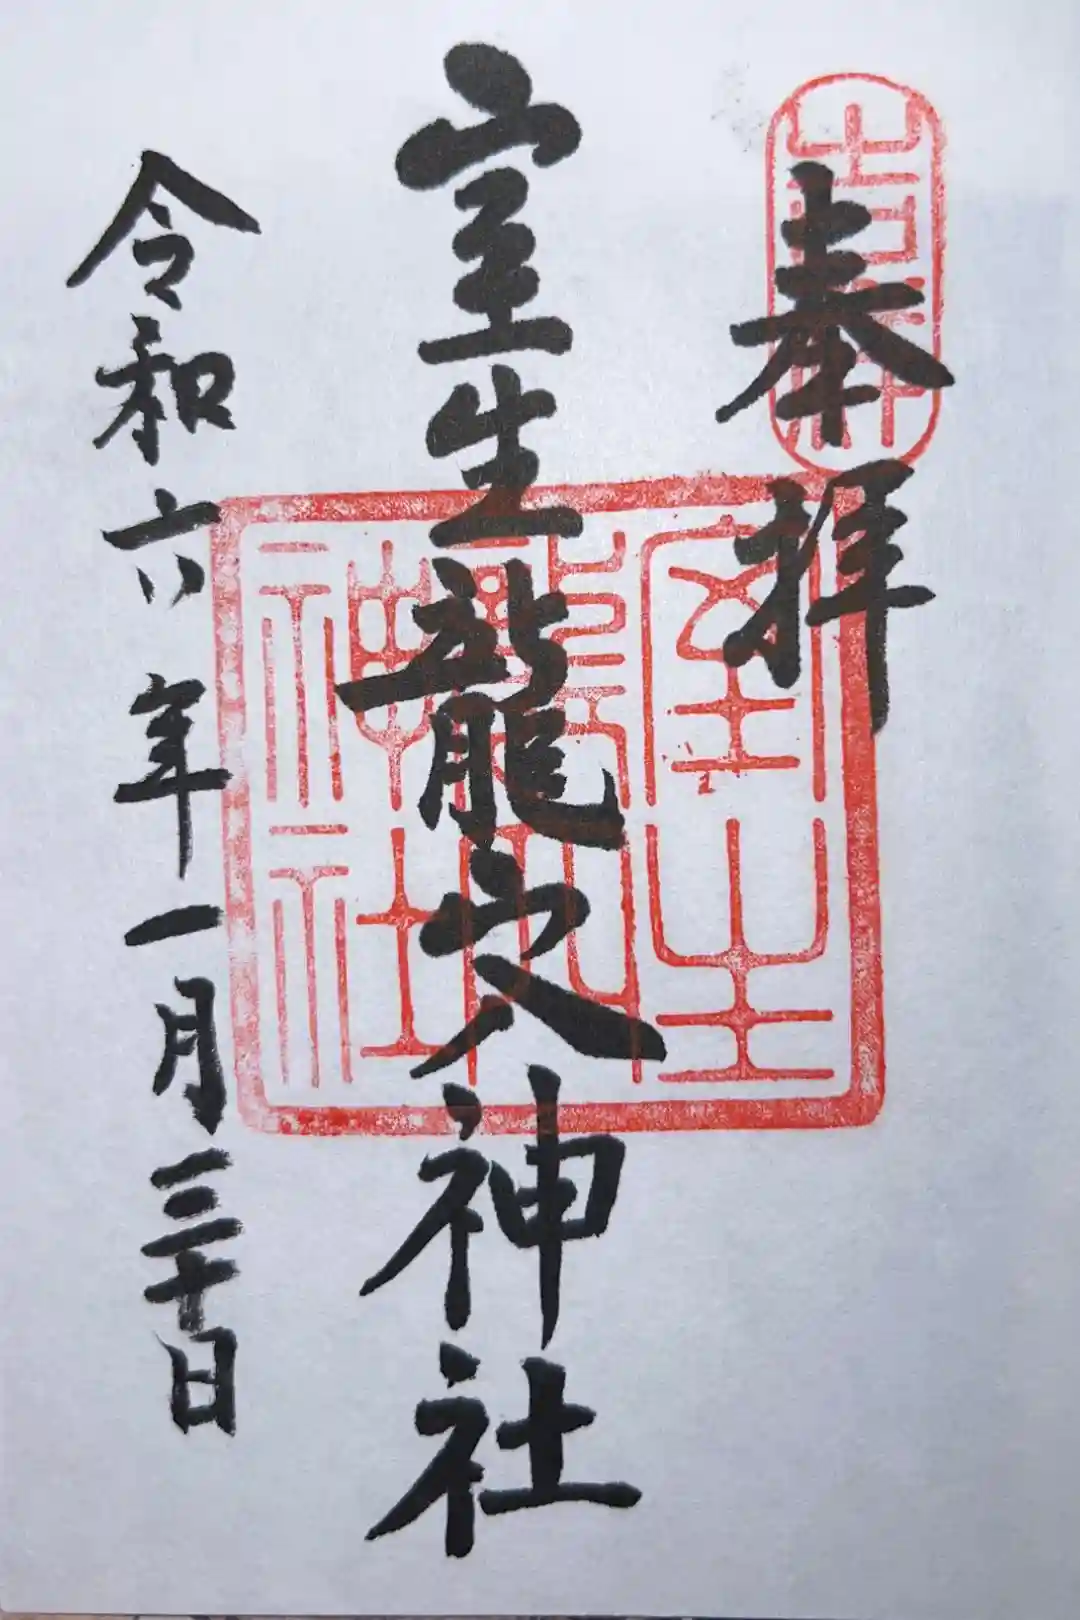 奉拝
室生龍穴神社
令和六年一月三十日
室生龍穴神社